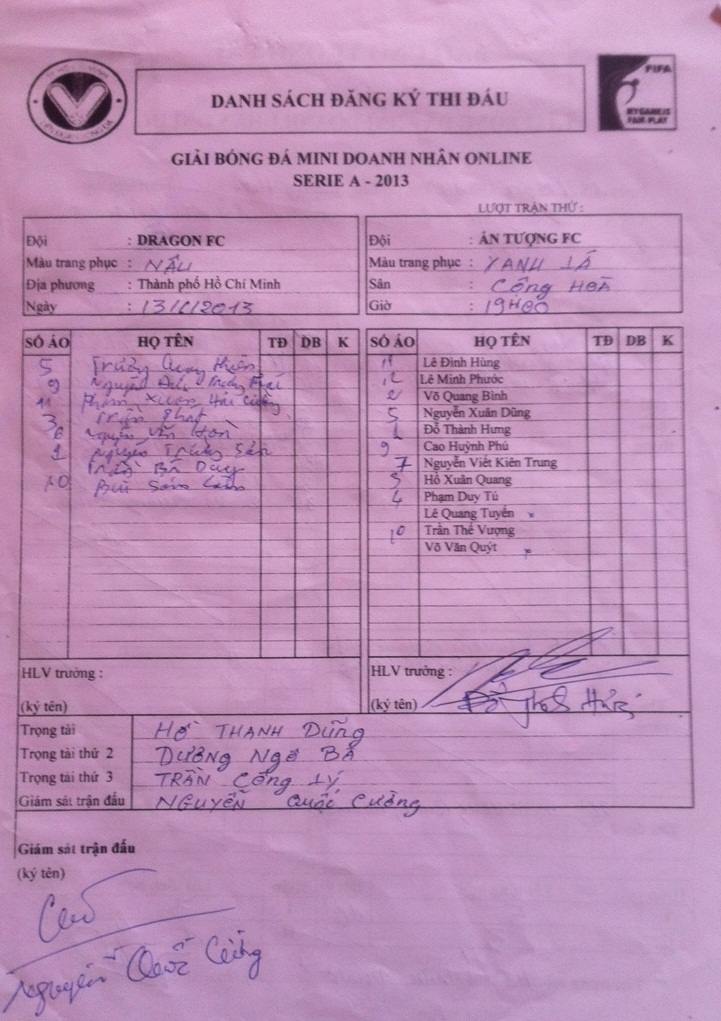 DANH SÁCH ĐĂNG KÝ THI ĐẤU
FIFA
MY GAME IS
FAIR PLAY
GIẢI BÓNG ĐÁ MINI DOANH NHÂN ONLINE
SERIE A - 2013
LƯỢT TRẬN THỨ :
Đội : DRAGON FC
Màu trang phục : NÂU
Địa phương : Thành phố Hồ Chí Minh
Ngày : 2013
Đội : ẤN TƯỢNG FC
Màu trang phục : XANH LÁ
Sân : CỘNG HOÀ
Giờ : 19H00
SỐ ÁO HỌ TÊN TĐ DB K
5 Trương Quang
9 Nguyễn
11 Phạm Xuân Hải
3 Trần Phát
6 Nguyễn Văn
2 Nguyễn Trường
Trần Bá Duy
10 Bùi
HLV trưởng :
(ký tên)
SỐ ÁO HỌ TÊN TĐ DB K
11 Lê Đình Hùng
12 Lê Minh Phước
2 Võ Quang Bình
5 Nguyễn Xuân Dũng
1 Đỗ Thành Hưng
9 Cao Huỳnh Phú
7 Nguyễn Viết Kiên Trung
3 Hồ Xuân Quang
4 Phạm Duy Tú
Lê Quang Tuyển x
10 Trần Thế Vượng
Võ Văn Quýt x
HLV trưởng :
(ký tên) Đỗ
Trọng tài HỒ THANH DŨNG
Trọng tài thứ 2 DƯƠNG NGÔ BÁ
Trọng tài thứ 3 TRẦN CÔNG LÝ
Giám sát trận đấu NGUYỄN QUỐC CƯỜNG
Giám sát trận đấu
(ký tên)
Nguyễn Quốc Cường